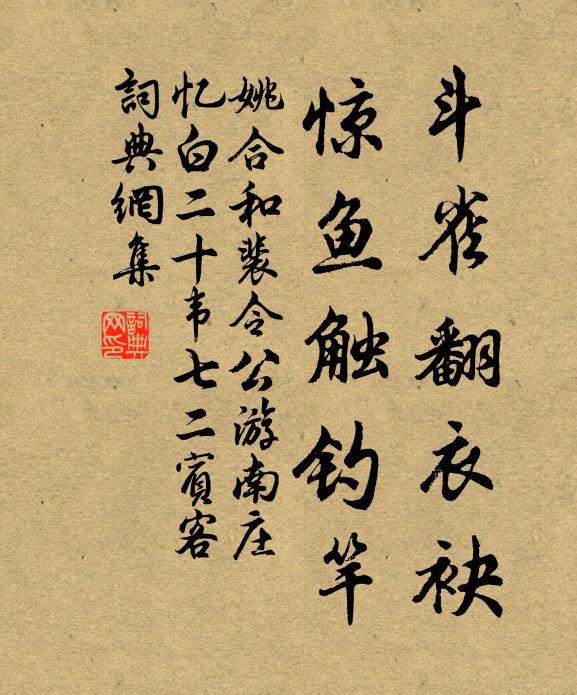 斗雀翻衣袂
惊鱼触钓竿
姚合和裴令公游南庄
忆白二十韦七二宾客
詞典網集
詞典网印